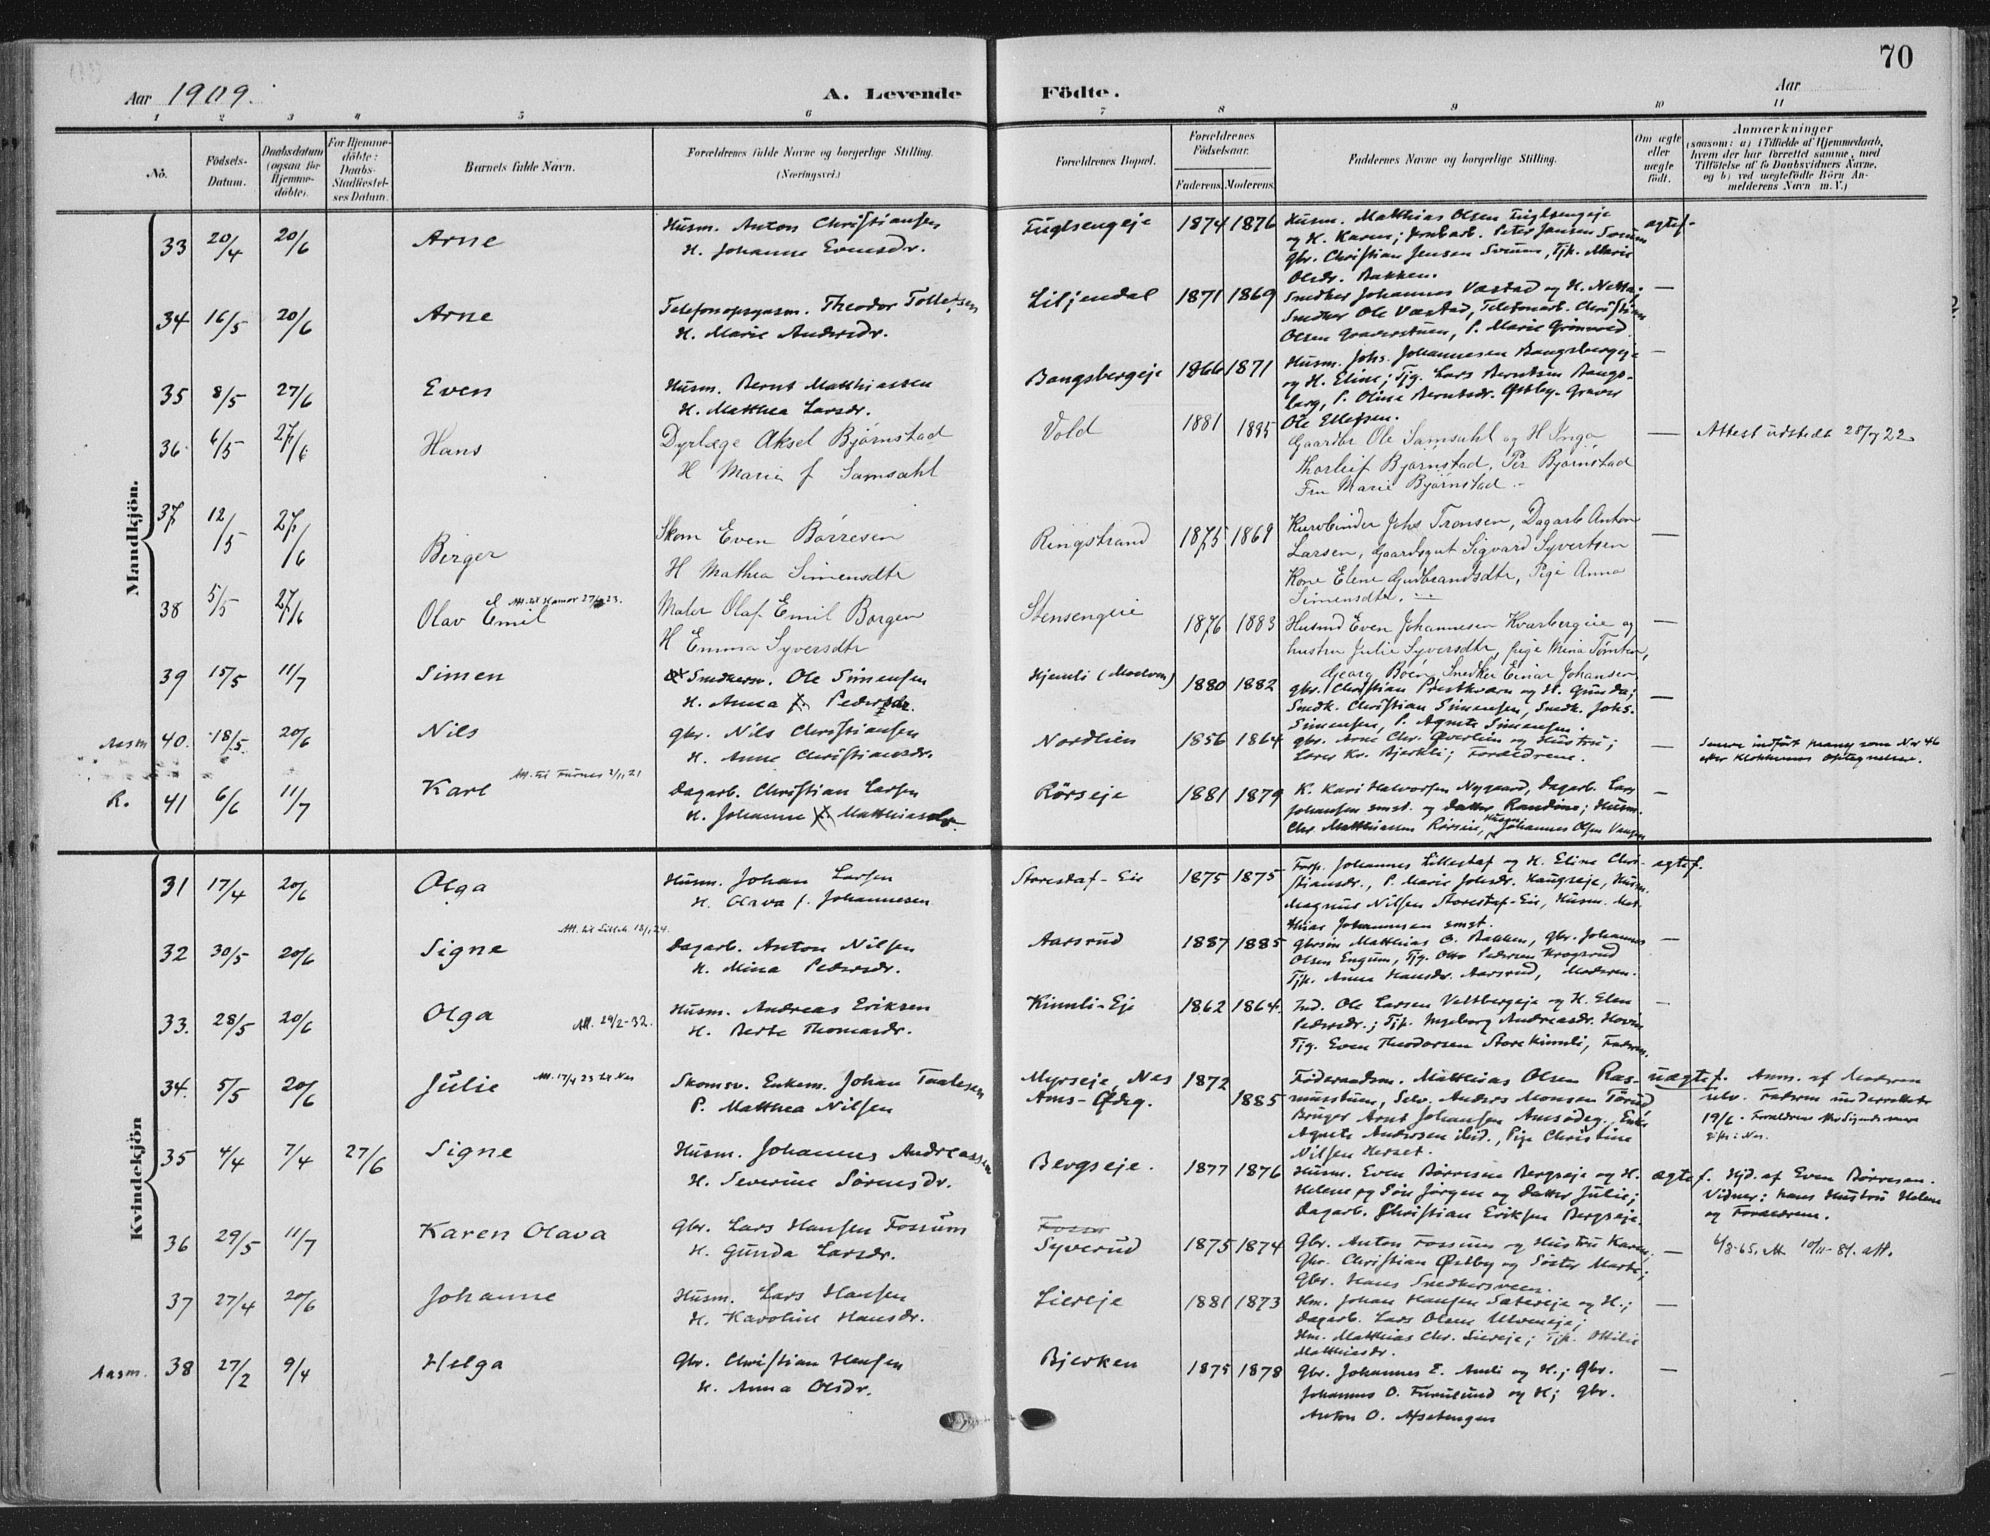 70
Aar 1909.
A. Levende Födte.
Aar
1 2 3 4 5 6 7 8 9 10 11
No.
Födsels-Datum.
Daabsdatum (ogsaa for Hjemmedöbte).
For Hjemmedöbte: Daabs-Stadfæstelses Datum.
Barnets fulde Navn.
Forældrenes fulde Navne og borgerlige Stilling. (Næringsvei.)
Forældrenes Bopæl.
Forældrenes Födselsaar.
Faderens. Moderens.
Faddernes Navne og borgerlige Stilling.
Om ægte eller uægte födt.
Anmærkninger (saasom: a) i Tilfælde af Hjemmedaab, hvem der har forrettet samme, med Tilföielse af to Daabsvidners Navne, og b) ved uægtefödte Börn Anmelderens Navn m. V.)
Mandkjön.
33 20/4 20/6 Arne
Husm. Anton Christiansen
H. Johanne Evensdr.
Fuglsengeje 1874 1876
Husm. Matthias Olsen Fuglsengeje
og H. Karen; Peter Jansen
Gbr. Christian Jensen Sveum, Tjp. Marie
Olsdr. Bakken.
ægtef.
34 16/5 20/6 Arne
Theodor Tollefsen
H. Marie Andersdr.
Liljendal 1871 1869
Snedker Johannes Væstad og H. Netta;
Snedker Ole Væstad, Telefonarb. Christian
Olsen Graverstuen, P. Marie
—
35 8/5 27/6 Even
Husm. Bernt Matthiassen
H. Matthea Larsdr.
Bangsbergeje 1866 1871
Husm. Johs. Johannesen Bangsbergeje
og H. Eline; Tjg. Lars Berntsen Bangsberg, P. Oline Berntsdr. Østby. Graver
Ole Ellefsen.
—
36 6/5 27/6 Hans
Dyrlæge Aksel Bjørnstad
H Marie f Samsahl
Vold 1881 1885
Gaardbr Ole Samsahl og H Inga,
Thorleif Bjørnstad, Per Bjørnstad
Fru Marie Bjørnstad
—
Attest udstedt 28/7 22
37 12/5 27/6 Birger
Skom Even Børresen
H Mathea Simensdtr
Ringstrand 1875 1869
Kurvbinder Johs Tronsen, Dagarb Anton
Larsen, Gaardsgut Sigvard Syvertsen
Kone Elene Gudbrandsdtr, Pige Anna
Simensdtr.
—
38 5/5 27/6 Olav Emil
Att. til Hamar 27/ 23.
Maler Olaf Emil Borgen
H Emma Syversdtr
Stensengeie 1876 1883
Husmd Even Johannesen Kværbergeie og
hustru Julie Syversdtr, pige Mina Tømten,
Georg Boen, Snedker Einar Johansen
—
39 15/5 11/7 Simen
Snedkersv. Ole Simensen
H. Anna Pedersdr.
Hjemli (Moelven) 1880 1882
Gbr. Christian Prestkværn og H. Gunda;
Snedk. Christian Simensen, Snedk. Johs.
Simensen, P. Agnete Simensen.
—
Aasm 40. 18/5. 20/6 Nils
Gbr. Nils Christiansen
H. Anne Christiansdr.
Nordlien 1856 1864
Gbr. Arne Chr. Øverlien og Hustru;
Lærer Kr. Bjerkli; Forældrene.
—
Senere indført som Nr 46
efter Klokkerens Optegnelser.
R. 41 6/6 11/7 Karl
Att. til Furnes 2/1 21
Dagarb. Christian Larsen
H. Johanne Matthiasdr.
Rörseje 1881 1879
K. Kari Halvorsen Nygaard, Dagarb. Lars
Johansen smst. og datter Randine; Husm.
Chr. Matthiassen Rörseie, Husm. Johannes Olsen Vangen
—
Kvindekjön
31 17/4 20/6 Olga
Husm. Johan Larsen
H. Olava f. Johannesen
Storestaf-Eie 1875 1875
Forp. Johannes Lillestaf og H. Eline Christiansdr., P. Marie Johsdr. Haugseje, Husm.
Magnus Nilsen Storestaf-Eie, Husm. Matthias Johannesen smst.
ægtef.
32 30/5 20/6 Signe
Dagarb. Anton Nilsen
H. Mina Pedersdr.
Aarsrud 1887 1885
Gbrsön Matthias O. Bakken, Gbr. Johannes
Olsen Engum, Tjg. Otto Pedersen Krogsrud
Tjp. Anna Hansdr. Aarsrud, Moderen.
—
33. 28/5 20/6 Olga
Att. 29/2-32.
Husm. Andreas Eriksen
H. Berte Thomasdr.
Kinnli-Eje 1862 1864
Ind. Ole Larsen Veltbergeje og H. Elen
Pedersdr.; Tjp. Ingeborg Andreasdr. Hovin
Tjg. Even Theodorsen Store Kinnli, Faderen.
—
34. 5/5 20/6 Julie
Att. 17/4 23 til Nes
Skomsv. Enkem. Johan Taalesen
P. Matthea Nilsen
Myrseje, Nes
Ams-Ødeg.
1872 1885
Föderaadsm. Matthias Olsen Rasmusstuen, Selv. Anders Monsen Törud
Bruger Arnt Johansen Amsödeg., Enke
Agnete Andersen ibid., Pige Christine
Nilsen Herset.
uægtef.
Anm. af Moderen
selv. Faderen underrettet
19/6.
35 4/4 7/4 27/6 Signe
Husm. Johannes Andreassen
H. Severine Sörensdr.
Bergseje. 1877 1876
Husm. Even Börresen Bergseje og H.
Helene og Sön Jörgen og datter Julie;
Dagarb. Christian Eriksen Bergseje.
ægtef.
Hjd. af Even Börresen.
Vidner: hans Hustru Helene
og Forældrene.
36 29/5 11/7 Karen Olava
Gbr. Lars Hansen Fossum
H. Gunda Larsdr.
Syverud 1875 1874
Gbr. Anton Fossum og Hustru Karen,
Gbr. Christian Østby og Söster Marte;
Gbr. Hans Snedkersveen.
—
6/8-65. att 10/11-81. att.
37 27/4 20/6 Johanne
Husm. Lars Hansen
H. Karoline Hansdr.
Liereje 1881 1873
Hm. Johan Hansen Sætereje og H.;
Dagarb. Lars Olsen Ulveneje;
Hm. Matthias Chr. Liereje; Tjp. Ottilie
Matthiasdr.
—
Aasm. 38 27/2 9/4 Helga
Gbr. Christian Hansen
H. Anna Olsdr.
Bjerken 1875 1878
Gbr. Johannes E. Amli og H.; Gbr.
Johannes O. Furulund og H; Gbr.
Anton O. Afsetengen
—